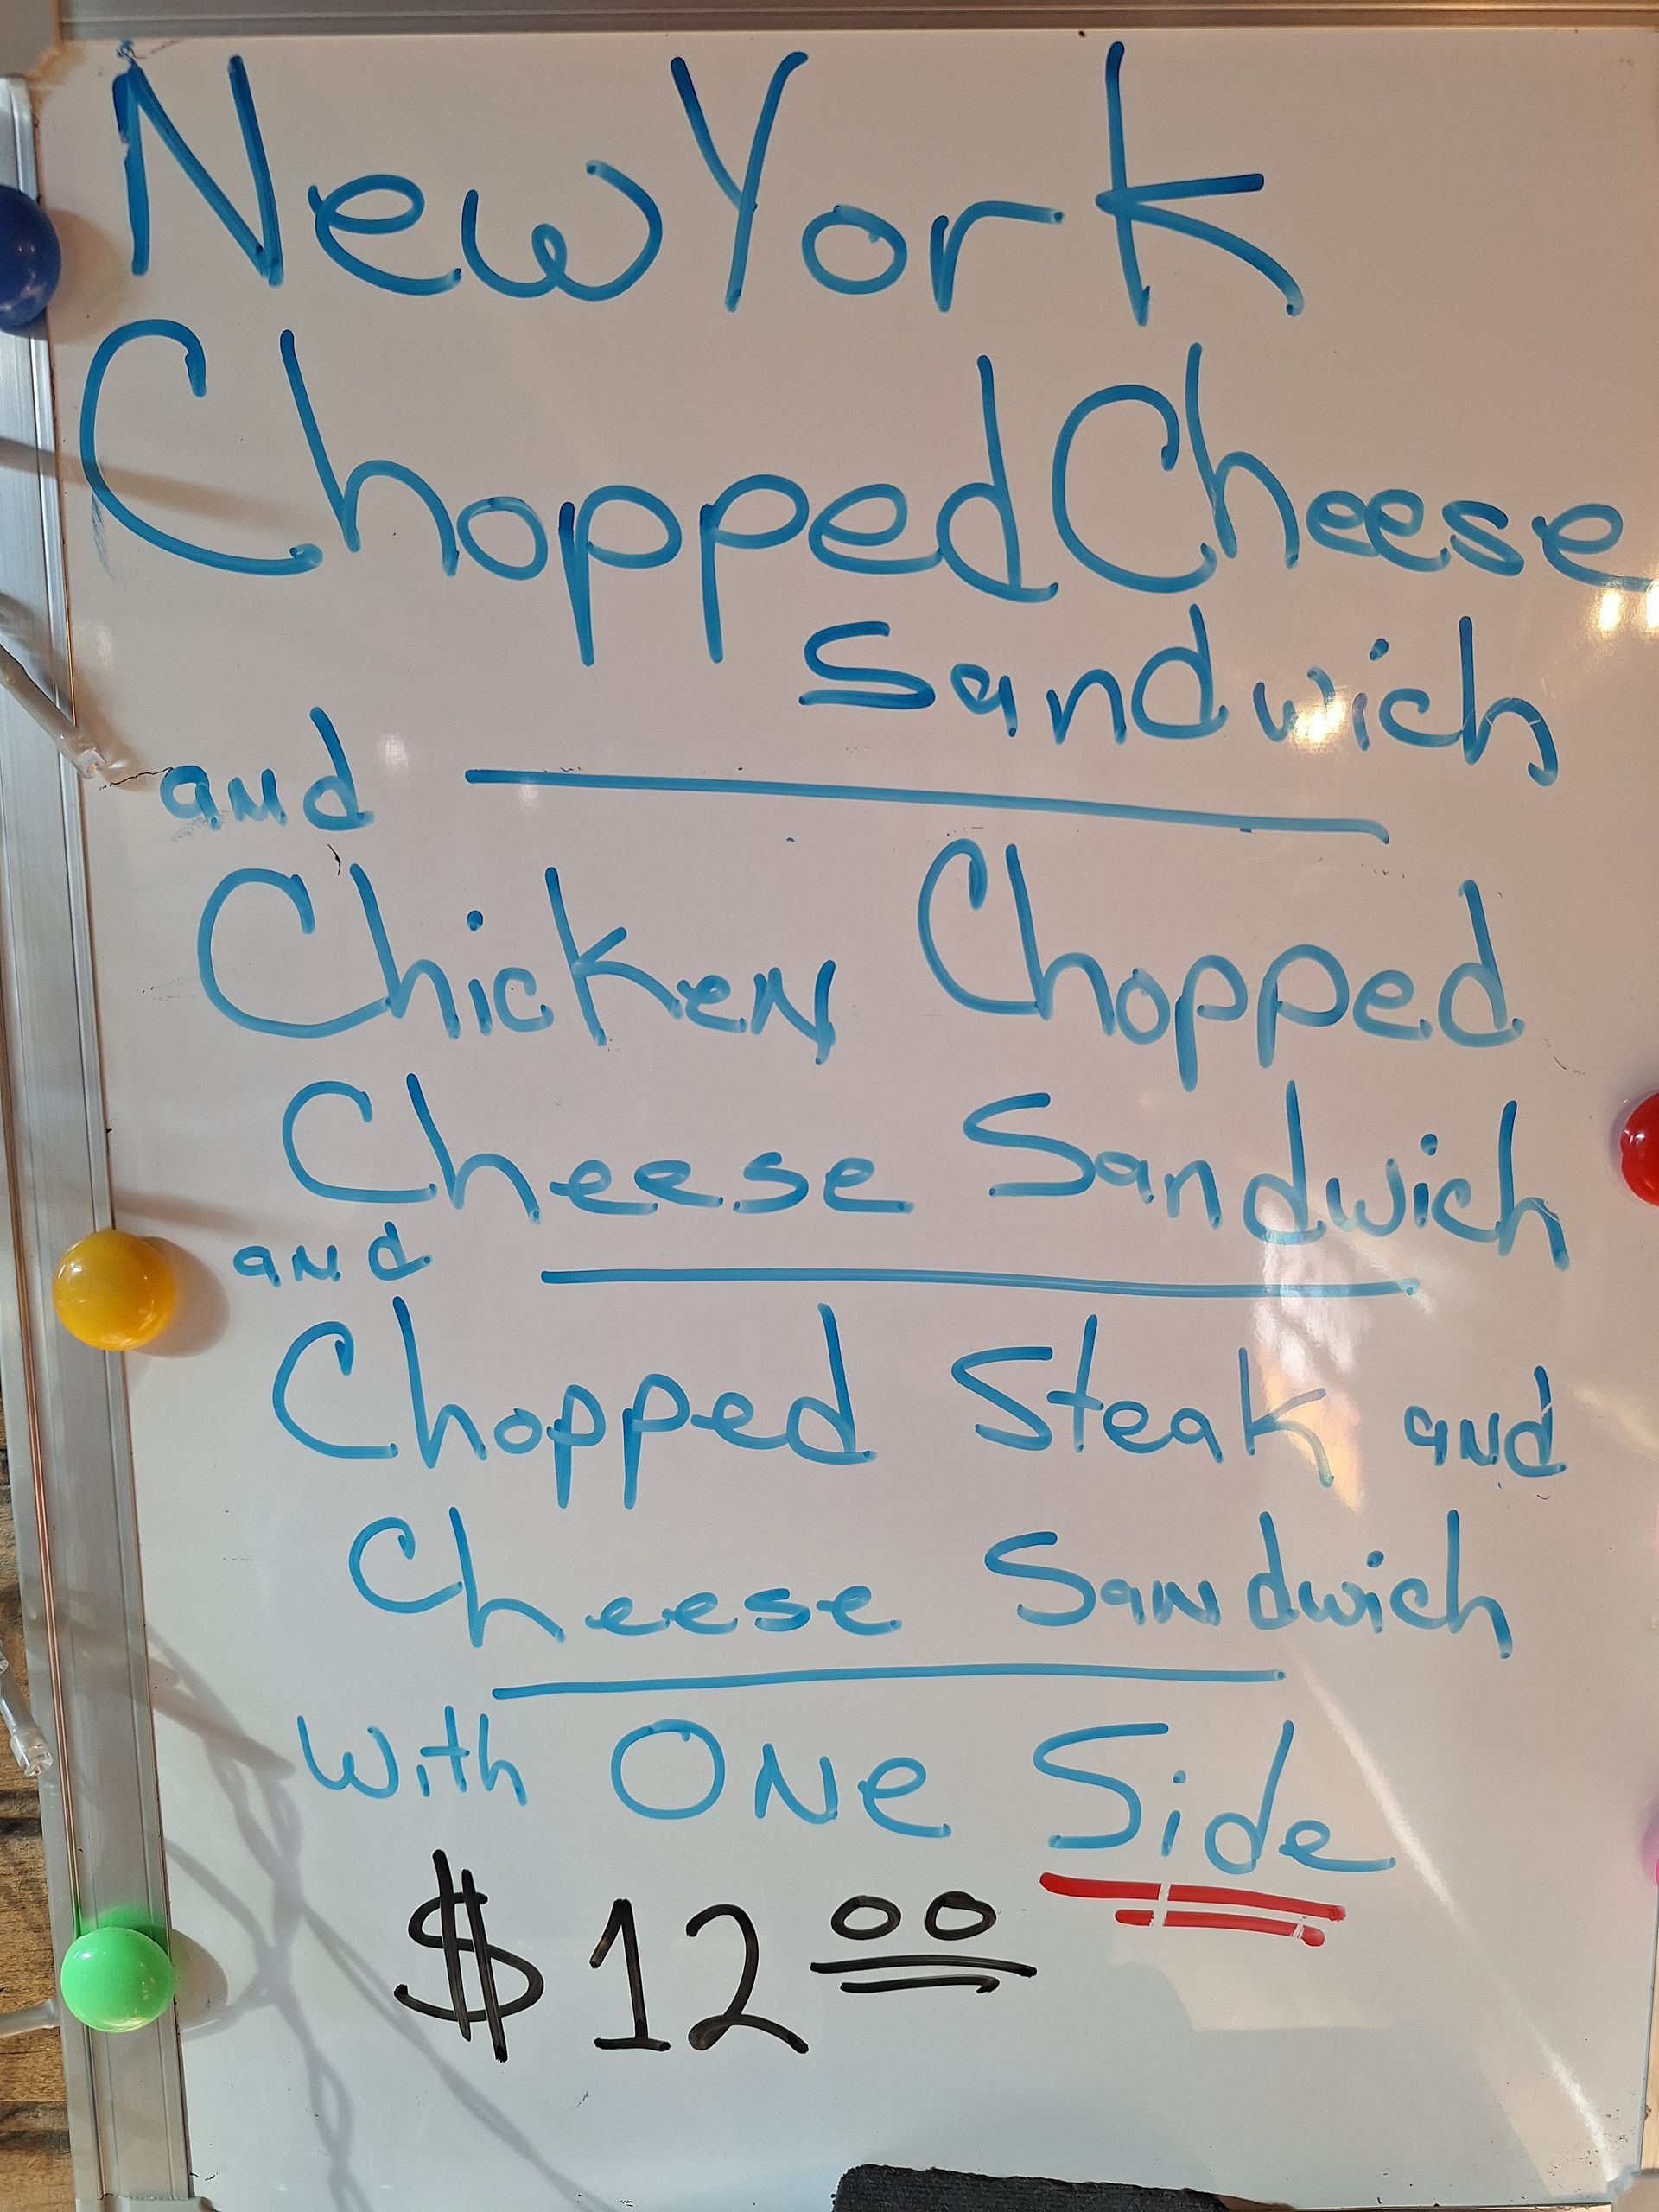 New York
Chopped Cheese
Sandwich
and
Chicken Chopped
Cheese Sandwich
and
Chopped Steak and
Cheese Sandwich
With One Side
$12.00